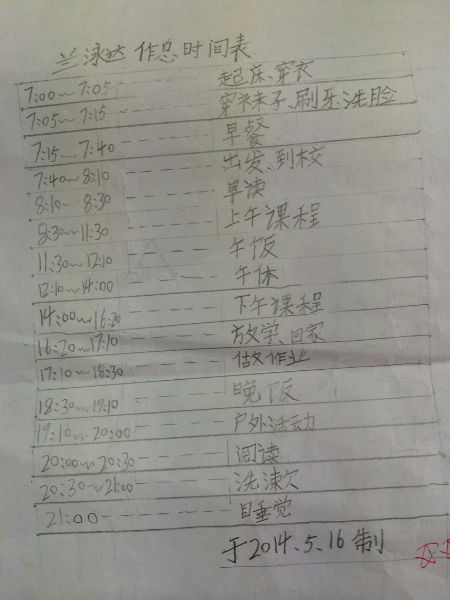 兰泳达 作息时间表
7:00~7:05 起床、穿衣
7:05~7:15 穿袜子、刷牙洗脸
7:15~7:40 早餐
7:40~8:10 出发、到校
8:10~8:30 早读
8:30~11:30 上午课程
11:30~12:10 午饭
12:10~14:00 午休
14:00~16:20 下午课程
16:20~17:10 放学、回家
17:10~18:30 做作业
18:30~19:10 晚饭
19:10~20:00 户外活动
20:00~20:30 阅读
20:30~21:00 洗漱
21:00 睡觉
于2014.5.16制